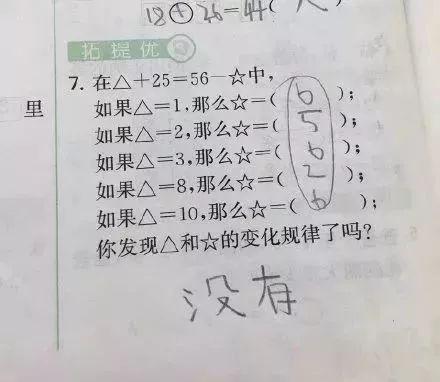 18+26=44(
拓提优
7. 在△+25=56-☆中，
里
如果△=1,那么☆=( 6 );
如果△=2,那么☆=( 5 );
如果△=3,那么☆=( 6 );
如果△=8,那么☆=( 2 );
如果△=10,那么☆=( 6 );
你发现△和☆的变化规律了吗?
没有